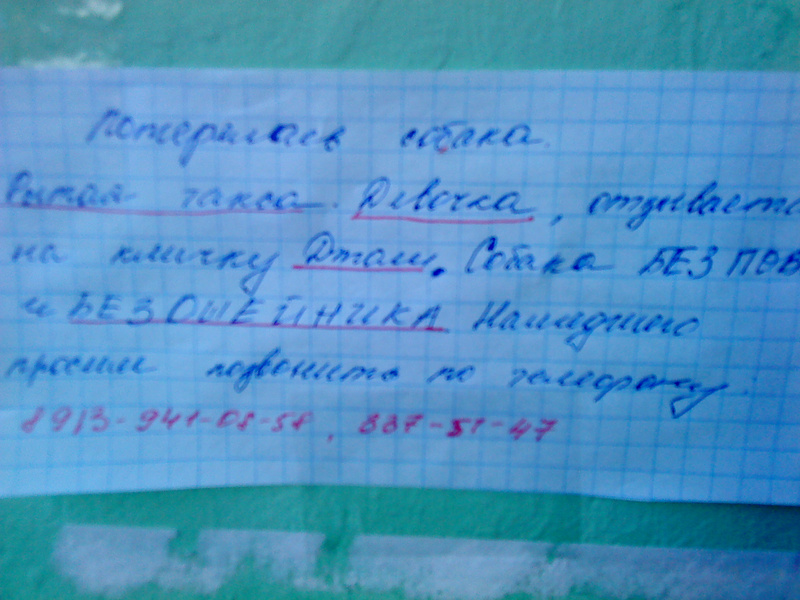 Потерялась собака.
Рыжая такса. Девочка, отзывается
на кличку Джали. Собака БЕЗ ПОВ
и БЕЗ ОШЕЙНИКА Нашедшего
просим позвонить по телефону:
8913-941-08-58, 337-51-47